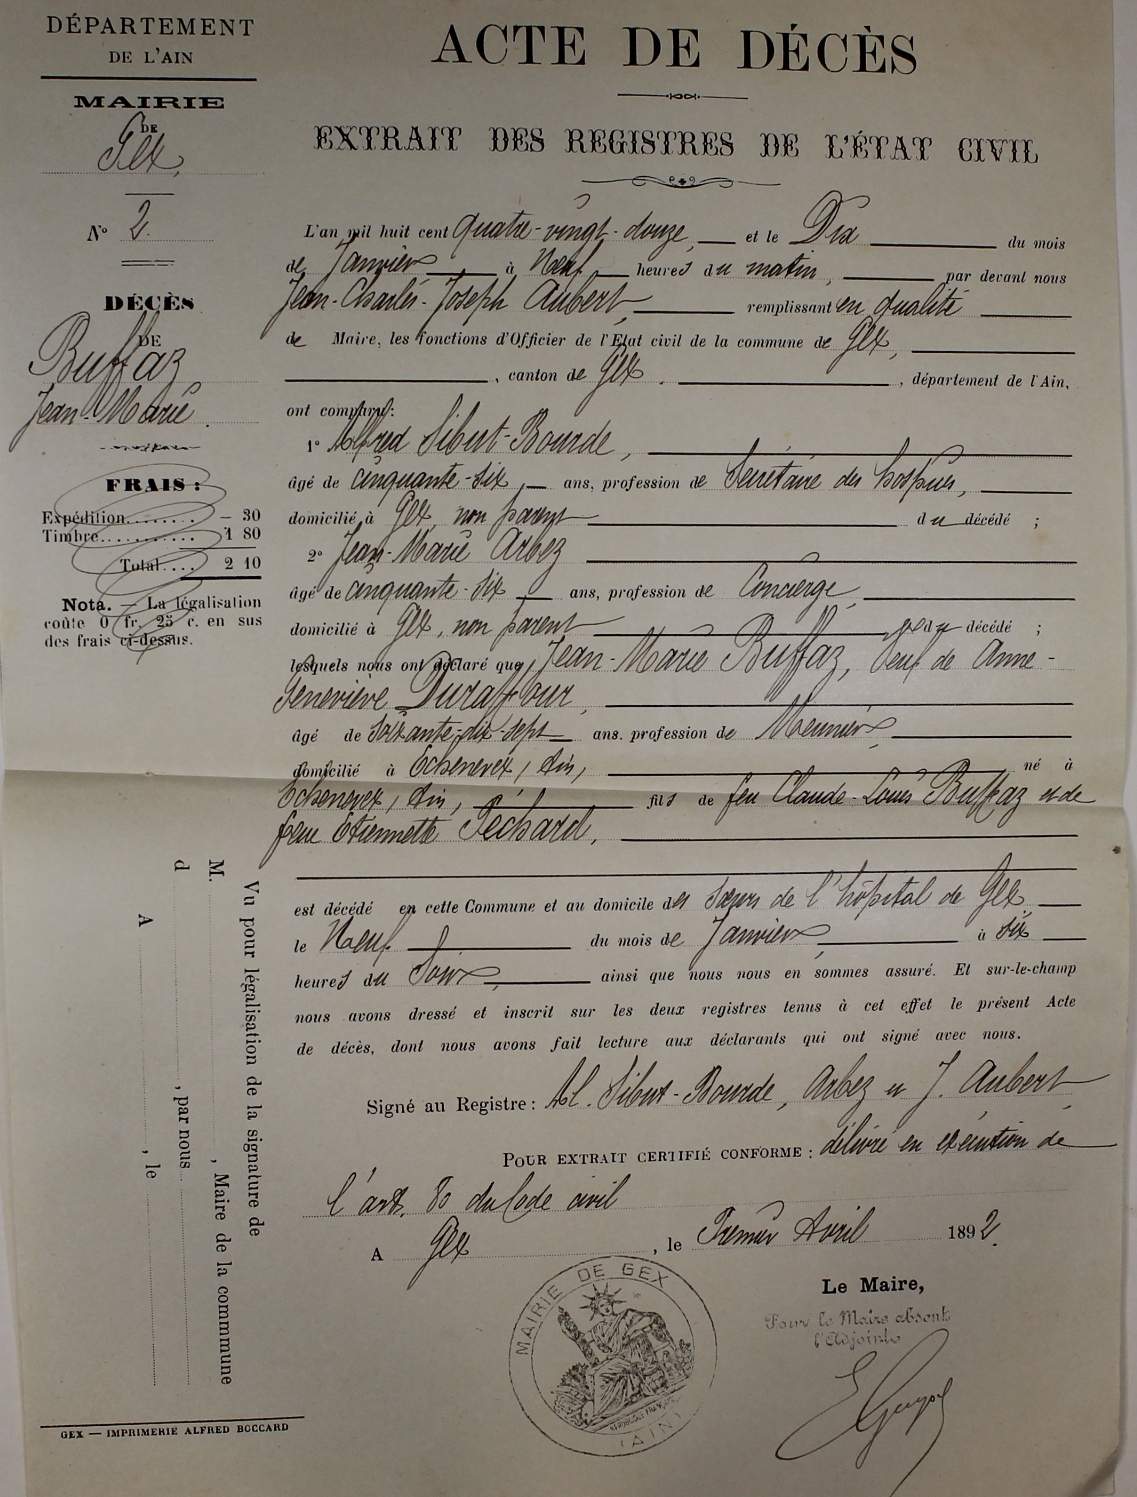 DÉPARTEMENT
DE L'AIN
MAIRIE
DE
Gex,
N° 2.
DÉCÈS
DE
Buffaz
Jean-Marie.
FRAIS :
Expédition........ – 30
Timbre........... 1 80
Total.... 2 10
Nota. — La légalisation
coûte 0 fr. 25 c. en sus
des frais ci-dessus.
Vu pour légalisation de la signature de
M. , Maire de la commmune
d , par nous
A , le
GEX — IMPRIMERIE ALFRED BOCCARD
ACTE DE DÉCÈS
EXTRAIT DES REGISTRES DE L'ÉTAT CIVIL
L'an mil huit cent quatre-vingt-douze, et le Dix du mois
de Janvier à Neuf heures du matin, par devant nous
Jean-Charles-Joseph Aubert, remplissant en qualité
de Maire, les fonctions d'Officier de l'Etat civil de la commune de Gex,
, canton de Gex. , département de l'Ain,
ont comparu :
1° Alfred Sibut-Bourde,
âgé de cinquante-six ans, profession de Secrétaire des hospices,
domicilié à Gex, non parent du décédé ;
2° Jean-Marie Arbez
âgé de cinquante-six ans, profession de Concierge,
domicilié à Gex, non parent du décédé ;
lesquels nous ont déclaré que Jean-Marie Buffaz, Veuf de Anne-
Geneviève Duraffour,
âgé de Soixante-dix-sept ans. profession de Meunier,
domicilié à Echenevex, Ain, né à
Echenevex, Ain, fils de feu Claude-Louis Buffaz et de
feue Etiennette Péchard,
est décédé en cette Commune et au domicile des sœurs de l'hôpital de Gex
le Neuf du mois de Janvier, à six
heures du Soir, ainsi que nous nous en sommes assuré. Et sur-le-champ
nous avons dressé et inscrit sur les deux registres tenus à cet effet le présent Acte
de décès, dont nous avons fait lecture aux déclarants qui ont signé avec nous.
Signé au Registre : Al. Sibut-Bourde, Arbez et J. Aubert
POUR EXTRAIT CERTIFIÉ CONFORME : délivré en exécution de
l'art. 80 du Code civil
A Gex , le Premier Avril 1892.
Le Maire,
Pour le Maire absent
l'Adjoint
MAIRIE DE GEX
RÉPUBLIQUE FRANÇAISE
(AIN)